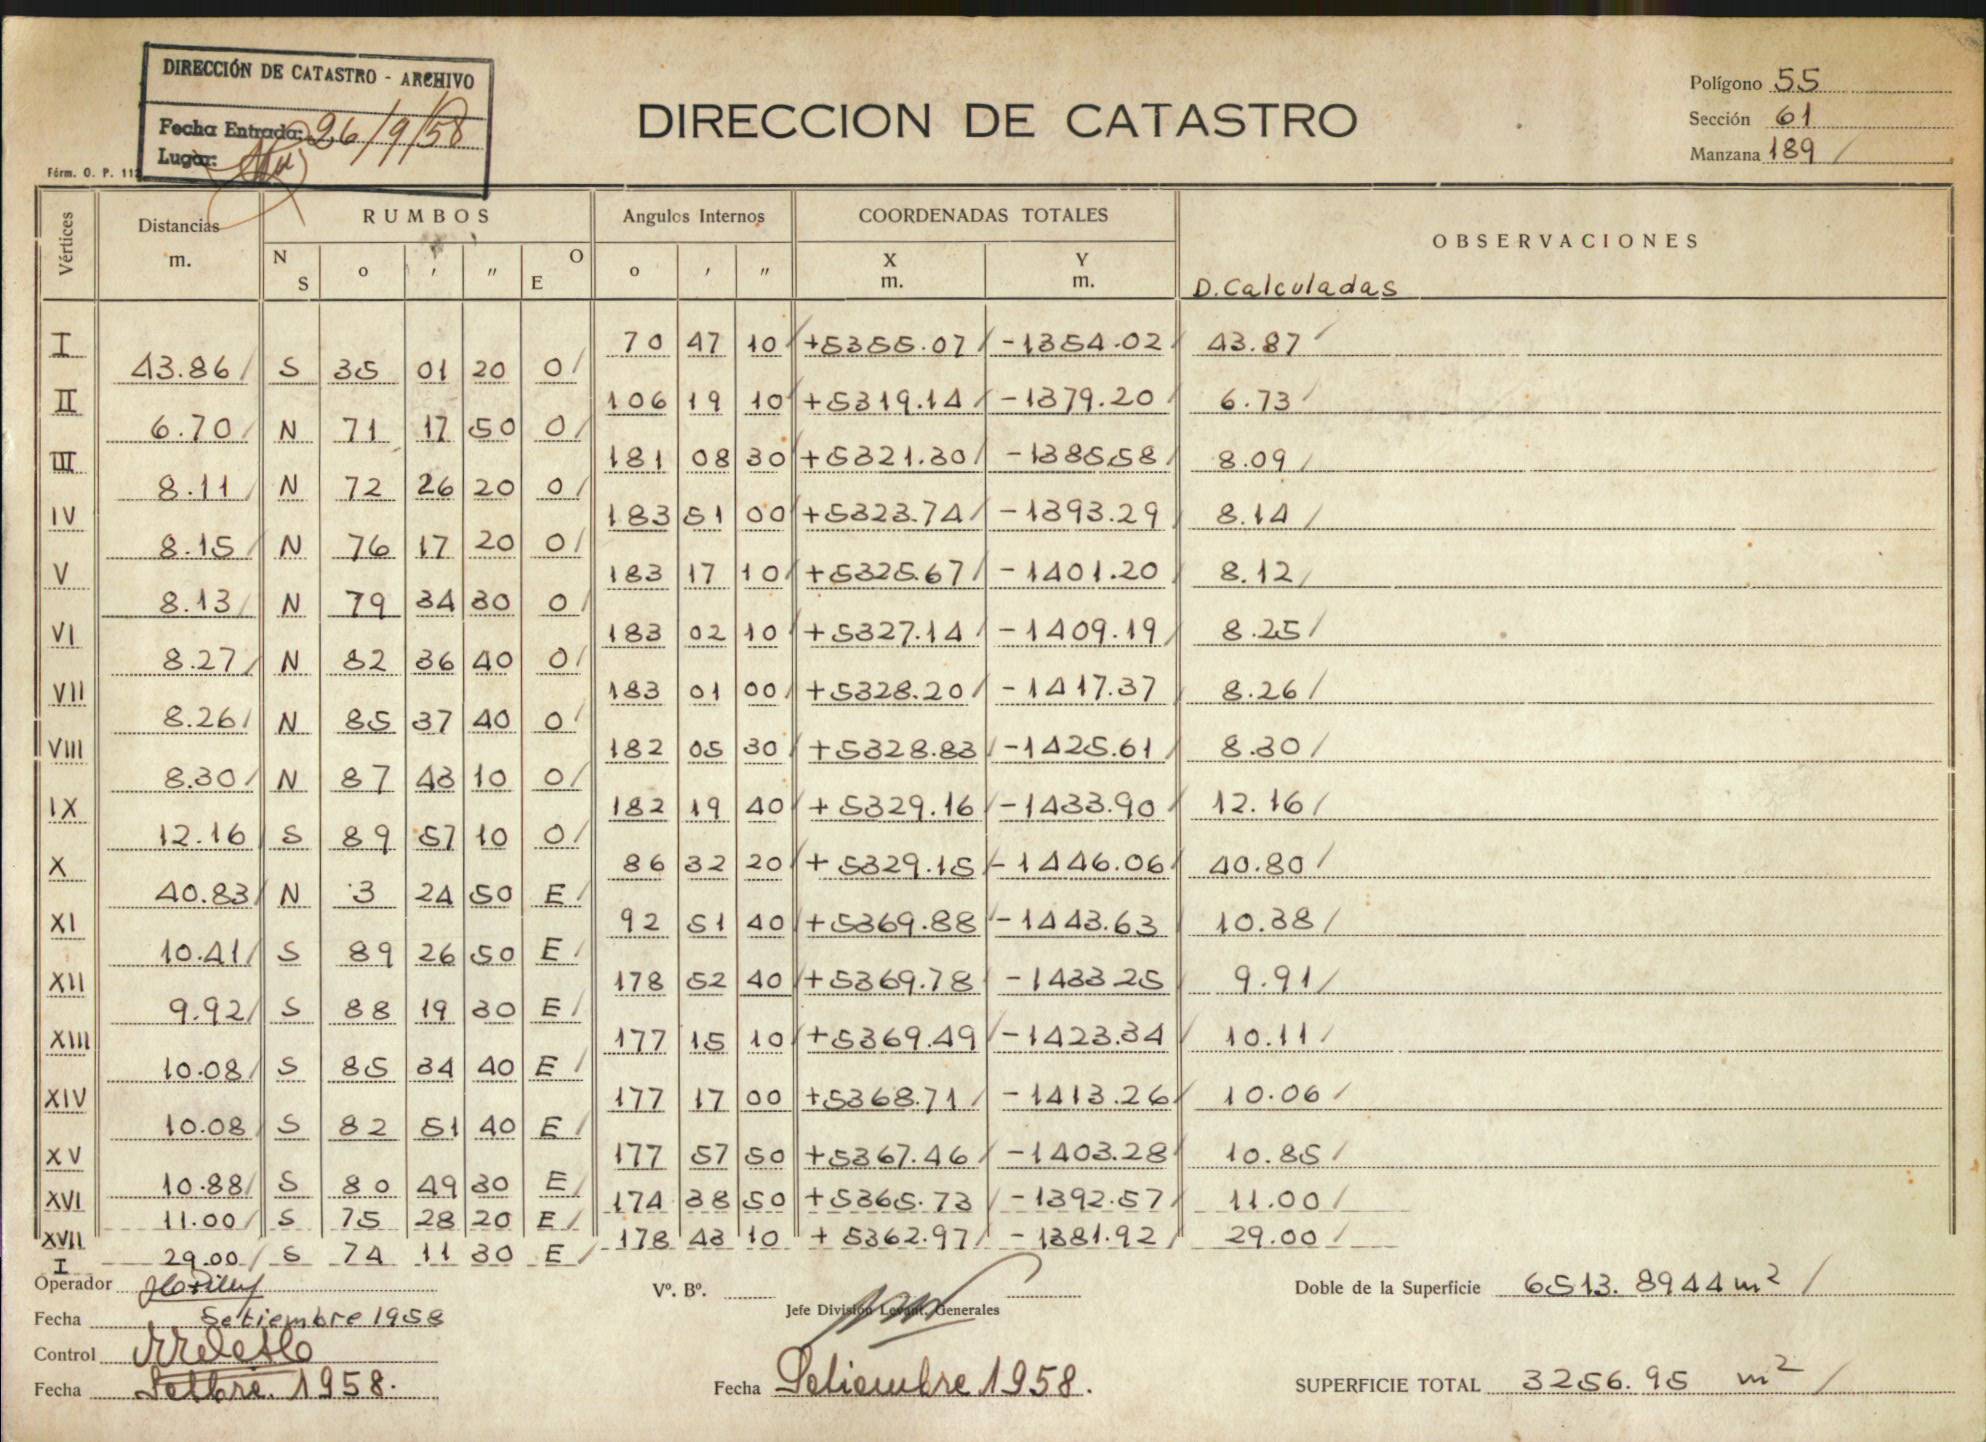 DIRECCIÓN DE CATASTRO - ARCHIVO
Fecha Entrada: 26/9/58
Lugar:
Fórm. O. P. 11
DIRECCION DE CATASTRO
Polígono 55
Sección 61
Manzana 189 /
Vértices Distancias m. RUMBOS Angulos Internos COORDENADAS TOTALES OBSERVACIONES
N S o ' " O E o ' " X m. Y m. D. Calculadas
I 70 47 10 +5355.07 / -1354.02 / 43.87 /
43.86 / S 35 01 20 O /
II 106 19 10 +5319.14 / -1379.20 / 6.73 /
6.70 / N 71 17 50 O /
III 181 08 30 +5321.30 / -1385.58 / 8.09 /
8.11 / N 72 26 20 O /
IV 183 51 00 +5323.74 / -1393.29 / 8.14 /
8.15 / N 76 17 20 O /
V 183 17 10 / +5325.67 / -1401.20 / 8.12 /
8.13 / N 79 34 30 O /
VI 183 02 10 / +5327.14 / -1409.19 / 8.25 /
8.27 / N 82 36 40 O /
VII 183 01 00 / +5328.20 / -1417.37 / 8.26 /
8.26 / N 85 37 40 O /
VIII 182 05 30 / +5328.83 / -1425.61 / 8.30 /
8.30 / N 87 43 10 O /
IX 182 19 40 / +5329.16 / -1433.90 / 12.16 /
12.16 / S 89 57 10 O /
X 86 32 20 / +5329.15 / -1446.06 / 40.80 /
40.83 / N 3 24 50 E /
XI 92 51 40 / +5369.88 / -1443.63 10.38 /
10.41 / S 89 26 50 E /
XII 178 52 40 / +5369.78 / -1433 25 9.91 /
9.92 / S 88 19 30 E /
XIII 177 15 10 / +5369.49 / -1423.34 / 10.11 /
10.08 / S 85 34 40 E /
XIV 177 17 00 / +5368.71 / -1413.26 / 10.06 /
10.08 / S 82 51 40 E /
XV 177 57 50 / +5367.46 / -1403.28 / 10.85 /
10.88 / S 80 49 30 E /
XVI 174 38 50 / +5365.73 / -1392.57 / 11.00 /
11.00 / S 75 28 20 E /
XVII 178 43 10 + 5362.97 / -1381.92 / 29.00 /
I 29.00 / S 74 11 30 E /
Operador
Fecha Setiembre 1958
Control
Fecha Setbre. 1958.
Vº. Bº.
Jefe División Levant. Generales
Fecha Setiembre 1958.
Doble de la Superficie 6513.8944 m2 /
SUPERFICIE TOTAL 3256.95 m2 /